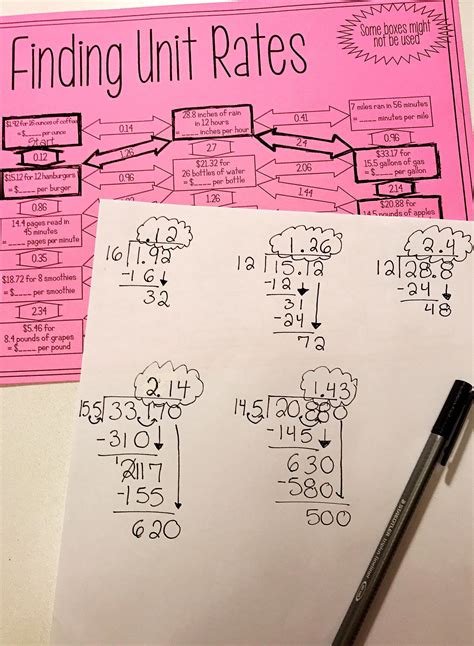 Finding Unit Rates
Some boxes might
not be used
$1.92 for 16 ounces of coffee
= $____ per ounce
Start
0.14
28.8 inches of rain
in 12 hours
= ____ inches per hour
0.41
7 miles ran in 56 minutes
= ____ minutes per mile
0.12
1.26
2.7
2.4
0.96
$15.12 for 12 hamburgers
= $____ per burger
0.96
$21.32 for
26 bottles of water
= $____ per bottle
2.06
$33.17 for
15.5 gallons of gas
= $____ per gallon
0.86
1.26
1.44
2.14
14.4 pages read in
45 minutes
= ____ pages per minute
$20.88 for
14.5 pounds of apples
0.35
$18.72 for 8 smoothies
= $____ per smoothie
2.34
$5.46 for
8.4 pounds of grapes
= $____ per pound
.12
16 1.92
-16
32
1.26
12 15.12
-12
31
-24
72
2.4
12 28.8
-24
48
2.14
15.5 33.170
-310
217
-155
620
1.43
14.5 20.880
-145
630
-580
500
STAEDTLER